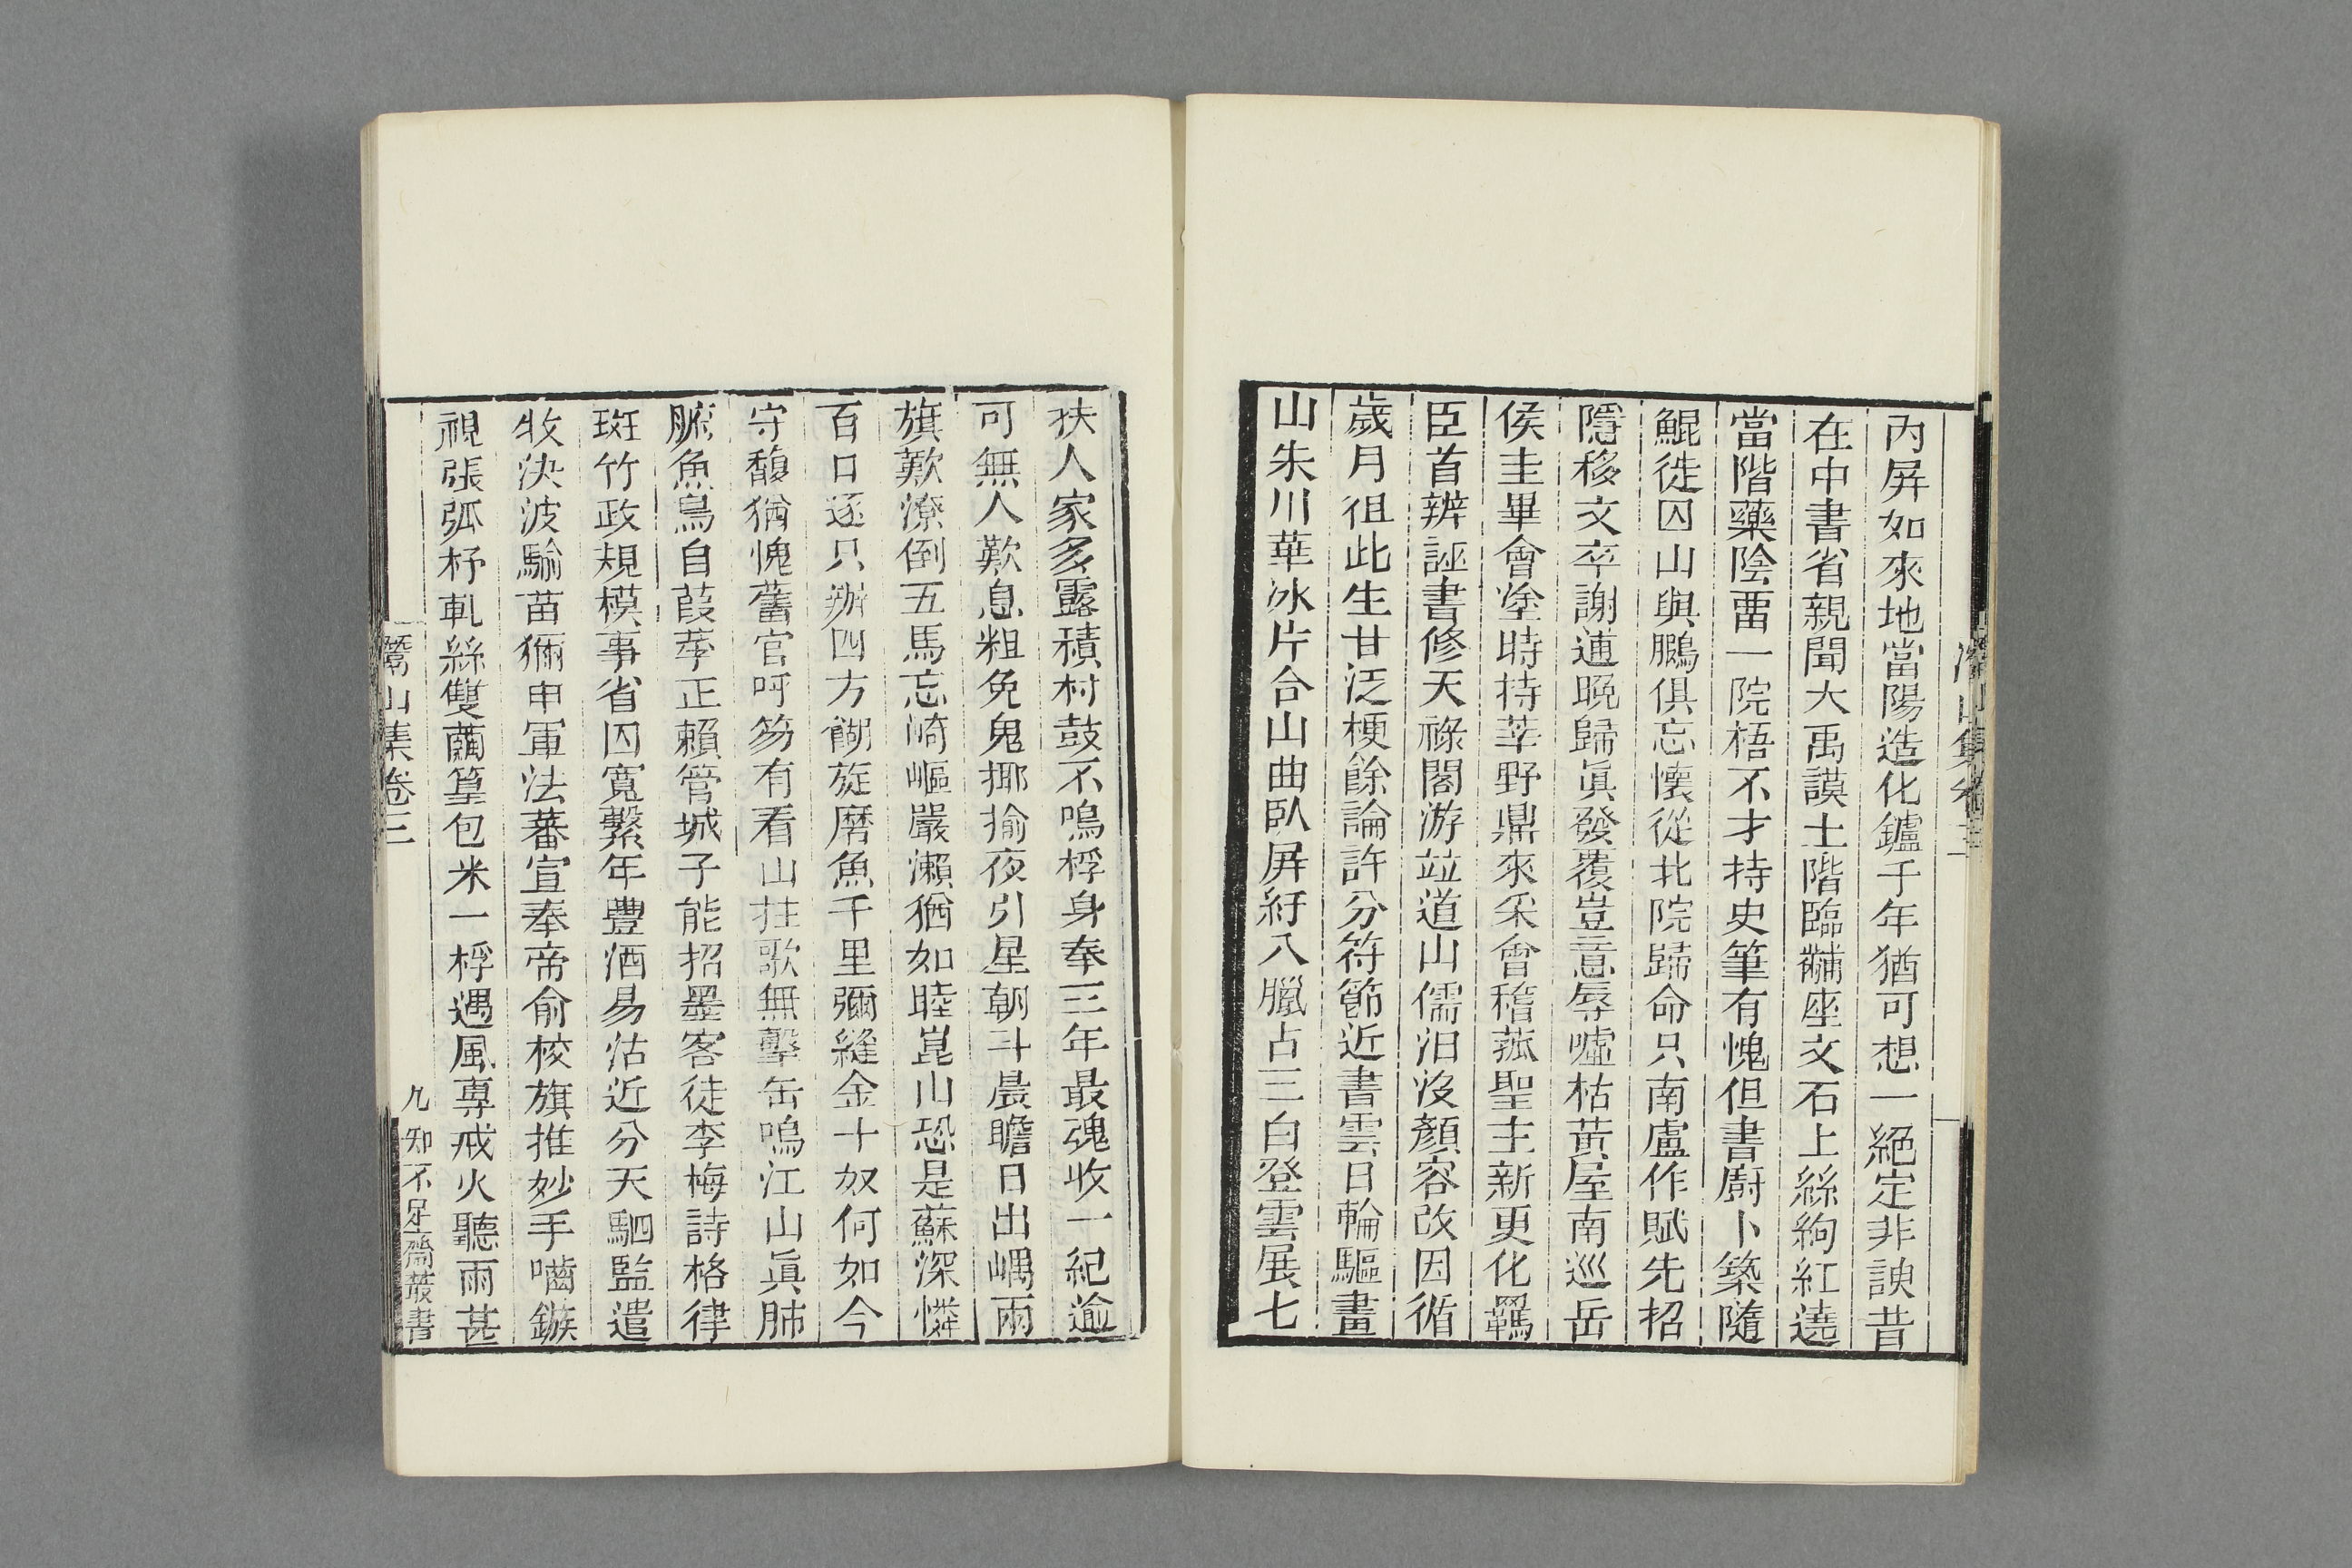 內屏如來地當陽造化鑪千年猶可想一絕定非諛昔
在中書省親聞大禹謨土階臨黼座文石上絲絇紅遶
當階藥陰畱一院梧不才持史筆有愧但書廚卜築隨
鯤徙囚山與鵬俱忘懷從北院歸命只南盧作賦先招
隱移文卒謝逋晚歸眞發覆豈意辱噓枯黃屋南巡岳
侯圭畢會塗時持莘野鼎來采會稽菰聖主新更化羈
臣首辨誣書修天祿閣游竝道山儒汨沒顏容改因循
歲月徂此生甘泛梗餘論許分符節近書雲日輪驅畫
山朱川華冰片合山曲臥屏紆八臘占三白登雲展七
扶人家多露積村鼓不鳴桴身奉三年最魂收一紀逾
可無人歎息粗免鬼揶揄夜引星朝斗晨瞻日出嵎雨
旗歎潦倒五馬忘崎嶇嚴瀨猶如睦崑山恐是蘇深憐
百口逐只辦四方餬旋磨魚千里彌縫金十奴何如今
守馥猶愧舊官呵笏有看山拄歌無擊缶嗚江山眞肺
腑魚鳥自葭莩正賴管城子能招墨客徒李梅詩格律
斑竹政規模事省囚寬繫年豐酒易沽近分天駟監遣
牧決波騟苗獮申軍法蕃宣奉帝俞校旗推妙手嚙鏃
視張弧杼軋絲雙繭篁包米一桴遇風專戒火聽雨甚
山集卷三
九 知不足齋叢書